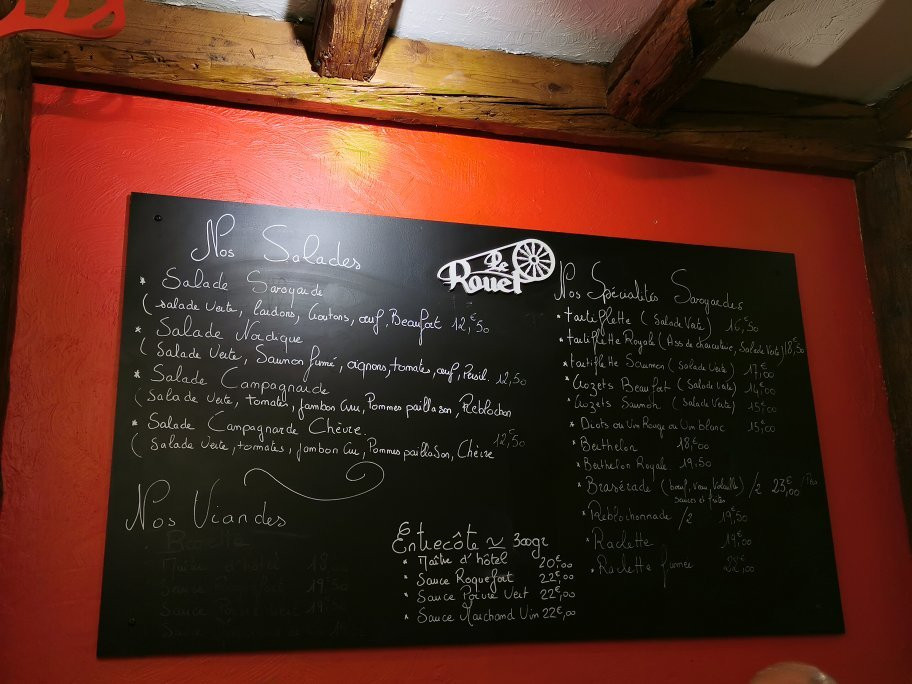 Nos Salades
* Salade Savoyarde
( Salade Verte, lardons, Croutons, œuf, Beaufort 12,€50
* Salade Nordique
( Salade Verte, Saumon fumé, oignons, tomates, œuf, Persil. 12,50
* Salade Campagnarde
( Salade Verte, tomates, jambon Cru, Pommes paillasson, Reblochon
* Salade Campagnarde Chèvre. 12,€50
( Salade Verte, tomates, jambon Cru, Pommes paillasson, Chèvre
Nos Viandes
Le
Rouet
Entrecôte ≃ 300gr
* Maître d'hôtel 20,€00
* Sauce Roquefort 22,€00
* Sauce Poivre Vert 22,€00
* Sauce Marchand Vin 22,€00
Nos Spécialités Savoyardes
* tartiflette ( Salade Verte) 16,€50
* tartiflette Royale ( Ass de charcuterie, Salade Verte) 18,€50
* tartiflette Saumon ( Salade Verte) 17,€00
* Crozets Beaufort ( Salade Verte) 14,€00
* Crozets Saumon ( Salade Verte) 15,€00
* Diots au Vin Rouge ou Vin blanc 15,€00
* Berthelon 18,€00
* Berthelon Royale 19,50
* Brasérade ( bœuf, Veau, Volaille) /2 23,€00
sauces et frites
* Reblochonnade /2 19,€50
* Raclette 19,€00
* Raclette fumée 22,€00